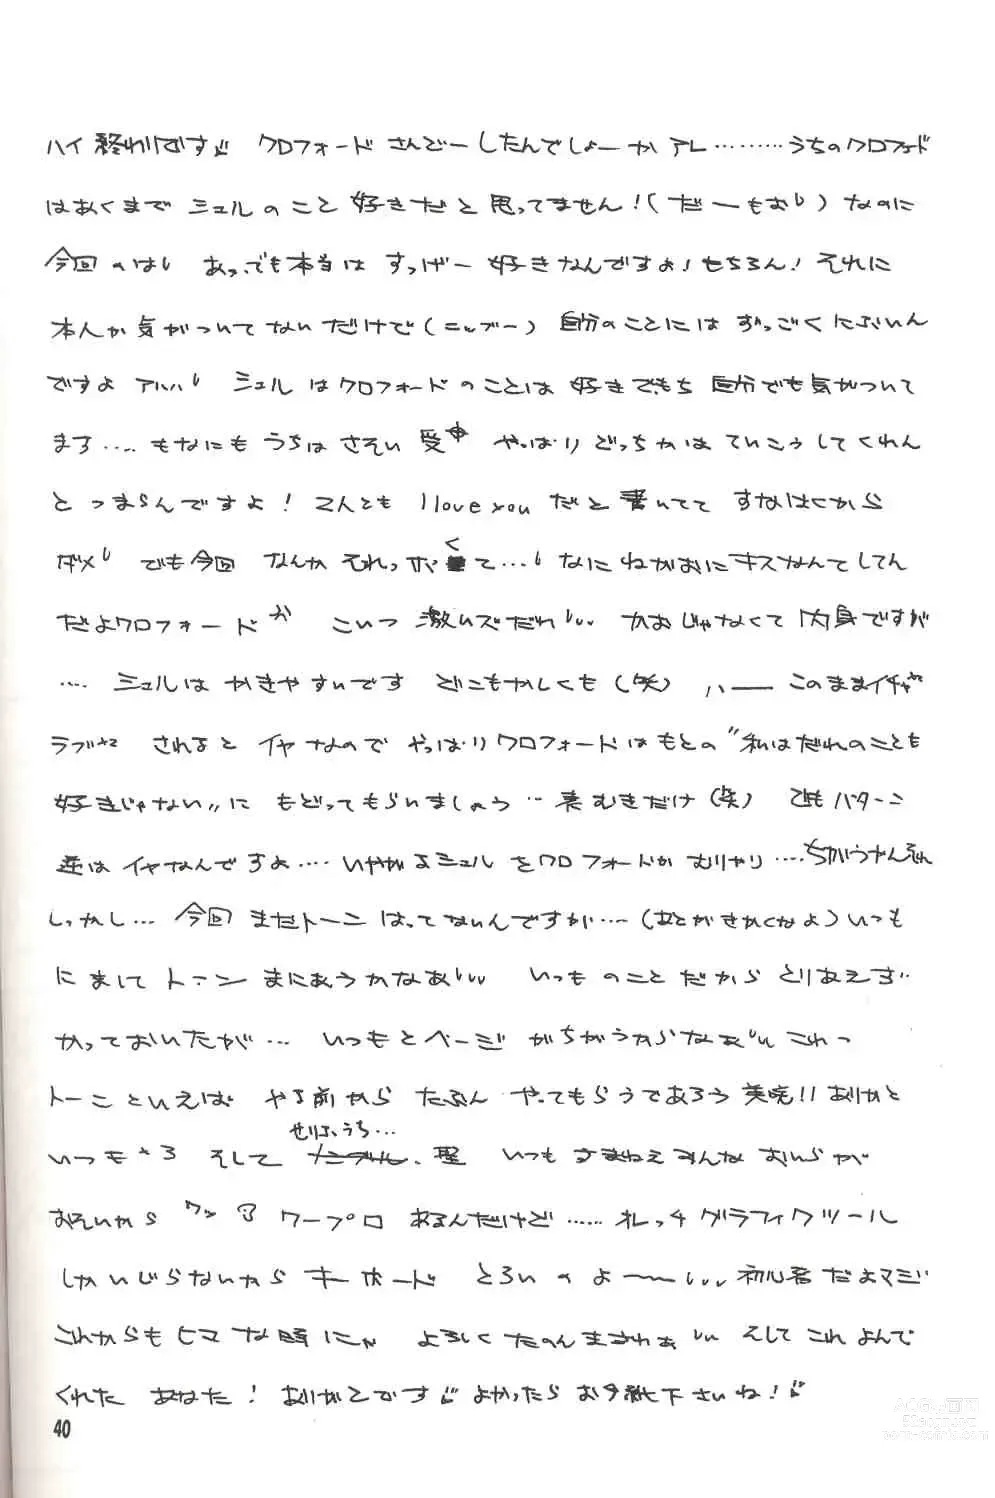 ハイ終わりです クロフォードさんどーしたんでしょーかアレ………うちのクロフォード
はあくまでミュルのこと好きだと思ってません!(だーもお)なのに
今回のは あっ、でも本当はすっげー好きなんですよ!もちろん!それに
本人が気がついてないだけで(ニッブー)自分のことにはすっごくにぶいん
ですよアハハ ミュルはクロフォードのことは好きでもち自分でも気がついて
ます…… もなにもうちはさそい受 やっぱりどっちかはていこうしてくれん
とつまらんですよ! 2人とも I love you だと書いてて すなはくから
ダメ でも今回なんかそれっぽくて… なにねがおにキスなんてしてん
だよクロフォード が こいつ激ムズだわ かおじゃなくて内身ですが
…… ミュルはかきやすいです どこもかしくも(笑) ハーー このままイチャ
ラブ されるとイヤなのでやっぱりクロフォードはもとの"私はだれのことも
好きじゃない"にもどってもらいましょう‥表むきだけ(笑) でもパターン
逆はイヤなんですよ‥‥いやがるミュルをクロフォードがむりやり‥‥ちがうかんそれ
しっかし… 今回まだトーンはってないんですが…(あとがきかくなよ)いつも
にましてトーンまにあうかなあ いつものことだからとりあえず
かっておいたが… いつもとページがちがうからなぁ これっ
トーンといえば やる前からたぶんやってもらうであろう美晩!!ありがと
いつも そして せりふうち… 聖 いつもすまねえみんなおいらが
おそいから ワープロあるんだけど……オレっチグラフィクツール
しかいじらないからキーボード とろいのよーー 初心者だよマジ
これからもヒマな時にゃ よろしくたのんますわぁ そしてこれよんで
くれたあなた! ありがとです よかったらお手紙下さいね!
40